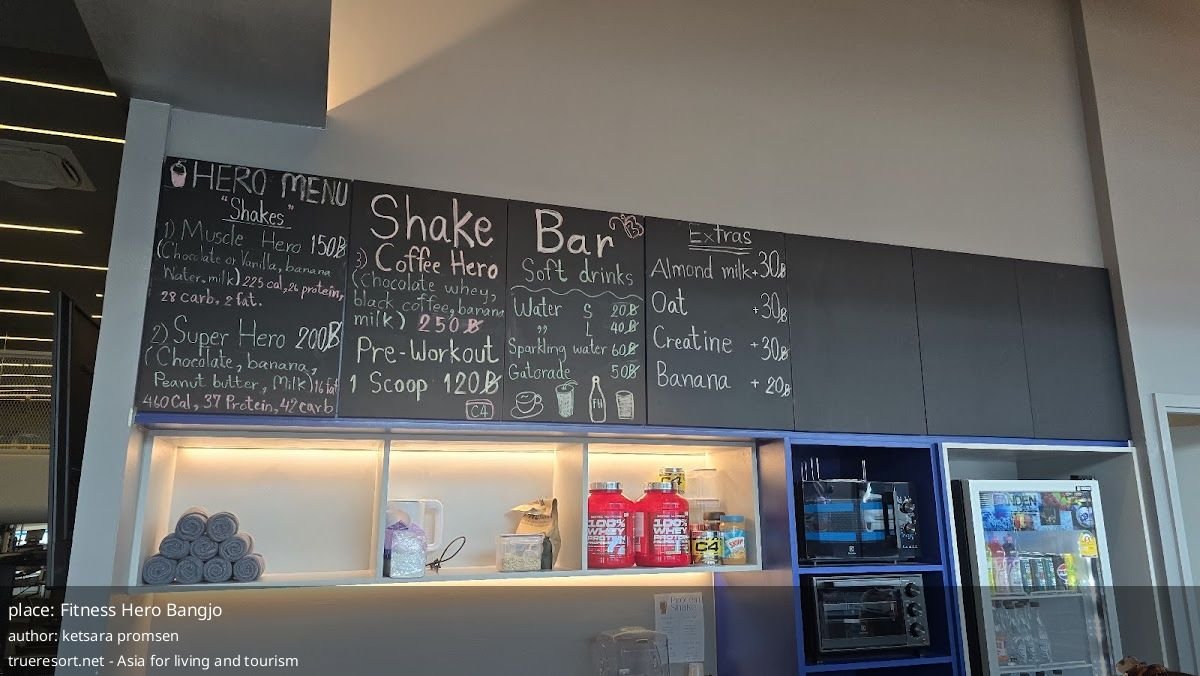 HERO MENU
"Shakes"
1) Muscle Hero 150฿
(Chocolate or Vanilla, banana
Water, milk) 225 cal, 26 protein,
28 carb, 2 fat.
2) Super Hero 200฿
(Chocolate, banana,
Peanut butter, Milk) 16 fat
460 Cal, 37 Protein, 42 carb
Shake
3) Coffee Hero
(Chocolate whey,
black coffee, banana
milk) 250฿
Pre-Workout
1 Scoop 120฿
C4
Bar
Soft drinks
Water S 20฿
,, L 40฿
Sparkling water 60฿
Gatorade 50฿
FH
Extras
Almond milk +30฿
Oat +30฿
Creatine +30฿
Banana +20฿
100%
WHEY
PROTEIN
100%
WHEY
PROTEIN
C4
C4
Protein
Shake
place: Fitness Hero Bangjo
author: ketsara promsen
trueresort.net - Asia for living and tourism